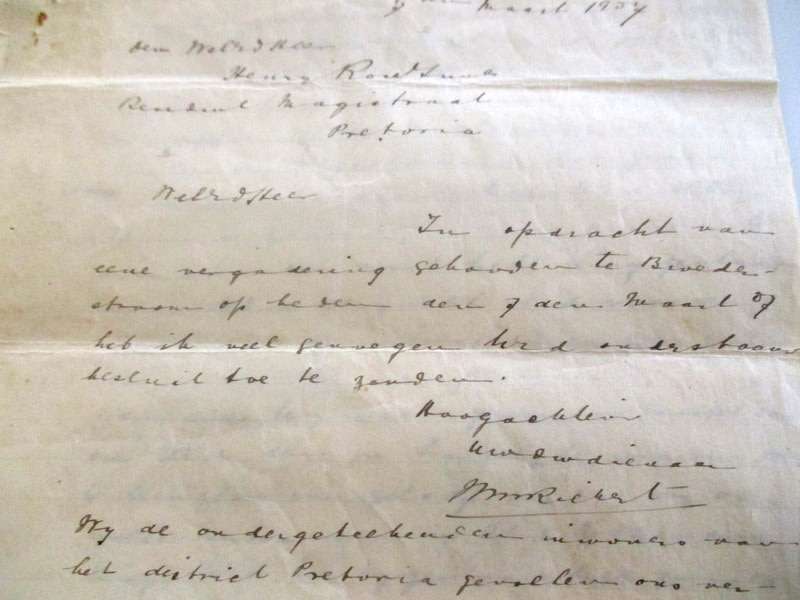 9 den Maart 1907
Den WelEdHeer
Henry
Resident Magistraat
Pretoria
WelEdHeer
In opdracht van
eene vergadering gehouden te Broeder-
stroom op heden den 9 den Maart 07
heb ik veel genoegen UEd onderstaand
besluit toe te zenden.
Hoogachtend
UwEdwdienaar
Wy de ondergeteekenden inwoners van
het district Pretoria gevoelen ons ver-